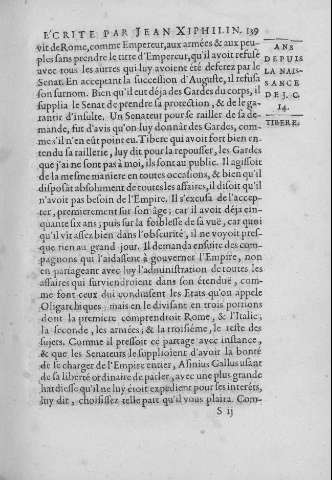 ECRITE PAR JEAN XIPHILIN. 139
vit de Rome, comme Empereur, aux armées & aux peu-
ples sans prendre le titre d'Empereur, qu'il avoit refusé
avec tous les autres qui luy avoient été deferez par le
Senat. En acceptant la succession d'Auguste, il refusa
son surnom. Bien qu'il eut déja des Gardes du corps, il
supplia le Senat de prendre sa protection, & de le ga-
rantir d'insulte. Un Senateur pour se railler de sa de-
mande, fut d'avis qu'on luy donnât des Gardes, com-
me s'il n'en eût point eu. Tibere qui avoit fort bien en-
tendu sa raillerie, luy dit pour la repousser, les Gardes
que j'ai ne sont pas à moi, ils sont au public. Il agissoit
de la mesme maniere en toutes occasions, & bien qu'il
disposât absolument de toutes les affaires, il disoit qu'il
n'avoit pas besoin de l'Empire. Il s'excusa de l'accep-
ter, premierement sur son âge; car il avoit déja cin-
quante six ans; puis sur la foiblesse de sa vuë, car quoi
qu'il vit assez bien dans l'obscurité, il ne voyoit pres-
que rien au grand jour. Il demanda ensuite des com-
pagnons qui l'aidassent à gouverner l'Empire, non
en partageant avec luy l'administration de toutes les
affaires qui surviendroient dans son étenduë, com-
me font ceux qui conduisent les Etats qu'on appele
Oligarchiques: mais en le divisant en trois portions
dont la premiere comprendroit Rome, & l'Italie,
la seconde, les armées; & la troisiéme, le reste des
sujets. Comme il pressoit ce partage avec instance,
& que les Senateurs le supplioient d'avoir la bonté
de se charger de l'Empire entier, Asinius Gallus usant
de sa liberté ordinaire de parler, avec une plus grande
hardiesse qu'il ne luy étoit expedient pour ses interêts,
luy dit, choisissez telle part qu'il vous plaira. Com-
S ij
ANS
DEPUIS
LA NAIS-
SANCE
DE J. C.
14.
TIBERE.